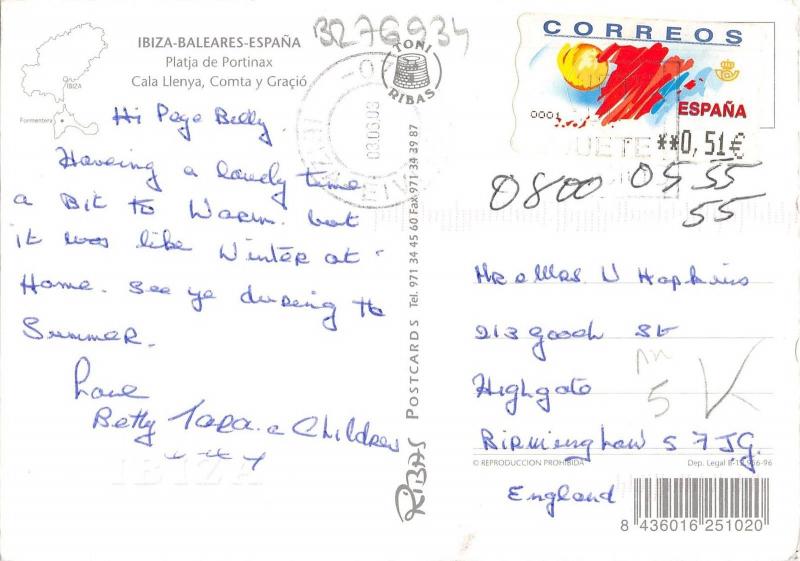 IBIZA-BALEARES-ESPAÑA
Platja de Portinax
Cala Llenya, Comta y Graçió
IBIZA
Formentera
BR76934
TONI
RIBAS
03.03.03
CORREOS
ESPAÑA
0001
**0,51€
0800 05 55
55
Hi Page Belly.
Haveing a lovely time
a Bit to Warm. but
it was like Winter at
Home. See ye dureing the
Summer.
Love
Betty Tara. & Children
x x x x
IBIZA
RIBAS POSTCARDS Tel. 971 34 45 60 Fax 971 34 39 87
Mr & Mrs N Hopkins
213 Gooch St
Highgate
Birmingham 5 7JG.
England
5 K
© REPRODUCCION PROHIBIDA
Dep. Legal B-15.966-96
8 436016 251020